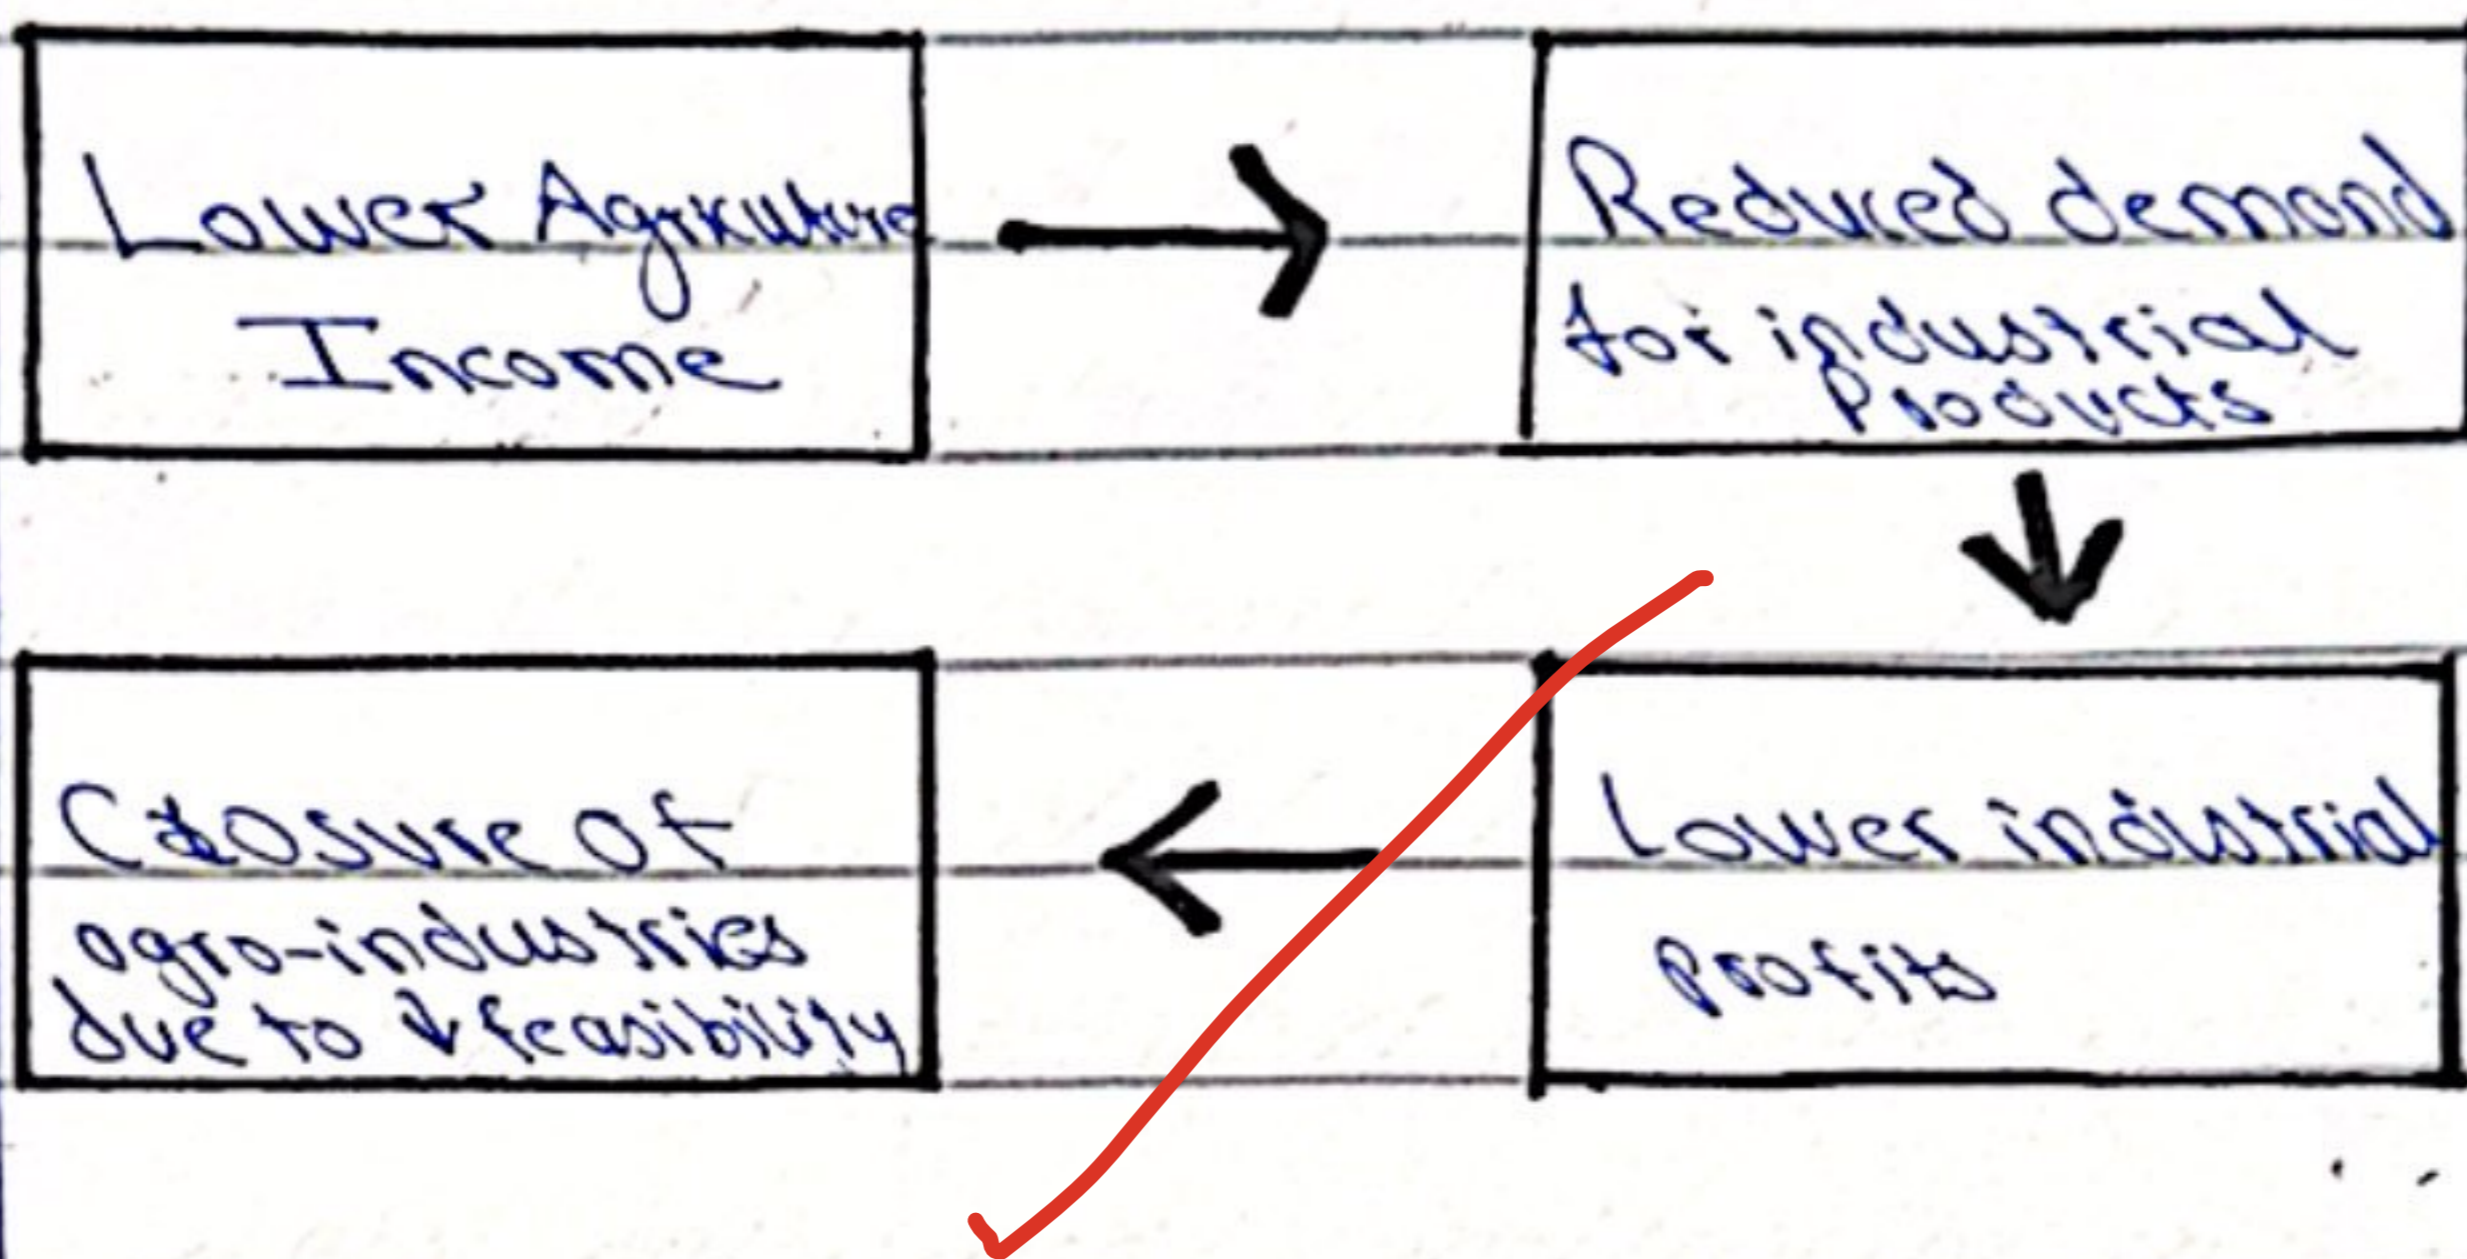 Lower Agriculture
Income
Reduced demand
for industrial
Products
Lower industrial
profits
Closure of
agro-industries
due to ↓ feasibility